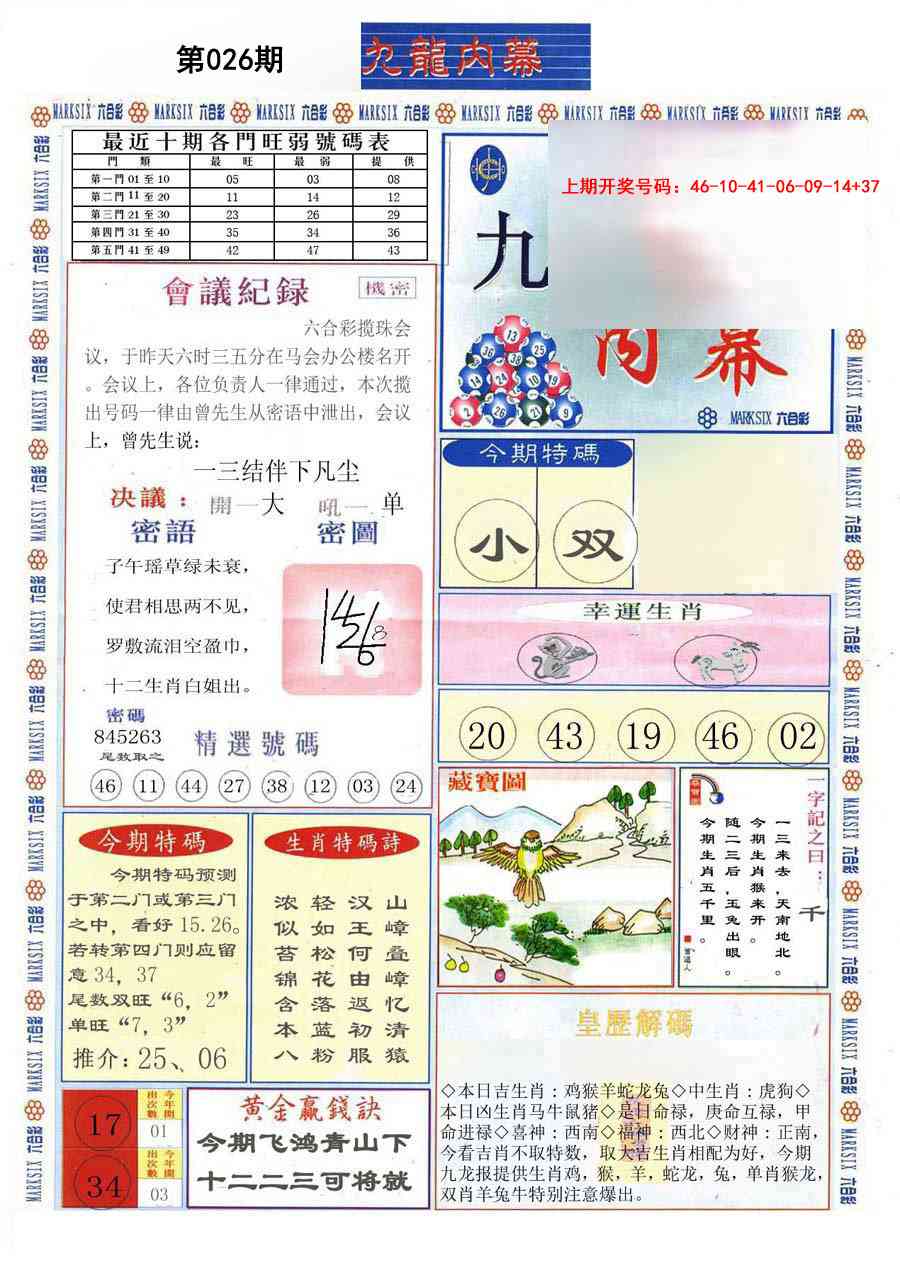 第026期
九龍内幕
MARKSIX 六合彩 MARKSIX 六合彩 MARKSIX 六合彩 MARKSIX 六合彩 MARKSIX 六合彩 MARKSIX 六合彩 MARKSIX 六合彩 MARKSIX 六合彩
最近十期各門旺弱號碼表
門 類 最 旺 最 弱 提 供
第一門 01 至 10 05 03 08
第二門 11 至 20 11 14 12
第三門 21 至 30 23 26 29
第四門 31 至 40 35 34 36
第五門 41 至 49 42 47 43
上期开奖号码：46-10-41-06-09-14+37
九
内幕
13
36 38 25
14 24 10 19
2 26 21 9
MARKSIX 六合彩
會議紀録
機密
六合彩揽珠会
议，于昨天六时三五分在马会办公楼名开
。会议上，各位负责人一律通过，本次揽
出号码一律由曾先生从密语中泄出，会议
上，曾先生说：
一三结伴下凡尘
决議：開一大 吼一单
密語
密圖
子午瑶草绿未衰，
使君相思两不见，
罗敷流泪空盈巾，
十二生肖白姐出。
密碼
845263
尾数取之
精選號碼
46 11 44 27 38 12 03 24
今期特碼
小 双
幸運生肖
20 43 19 46 02
藏寶圖
一字記之曰：
千
一三来去，天南地北。
今期生肖猴来开。
随二三后，玉兔出眼。
今期生肖五千里。
今期特碼
今期特码预测
于第二门或第三门
之中，看好 15.26。
若转第四门则应留
意 34，37
尾数双旺“6，2”
单旺“7，3”
推介：25、06
生肖特碼詩
浓轻汉山
似如王嶂
苔松何叠
锦花由嶂
含落返忆
本蓝初清
八粉服猿
17 出次數 今年開 01
34 出次數 今年開 03
黄金赢錢訣
今期飞鸿青山下
十二二三可将就
皇歷解碼
◇本日吉生肖：鸡猴羊蛇龙兔◇中生肖：虎狗◇
本日凶生肖马牛鼠猪◇是日命禄，庚命互禄，甲
命进禄◇喜神：西南◇福神：西北◇财神：正南，
今看吉肖不取特数，取大吉生肖相配为好，今期
九龙报提供生肖鸡，猴，羊，蛇龙，兔，单肖猴龙，
双肖羊兔牛特别注意爆出。